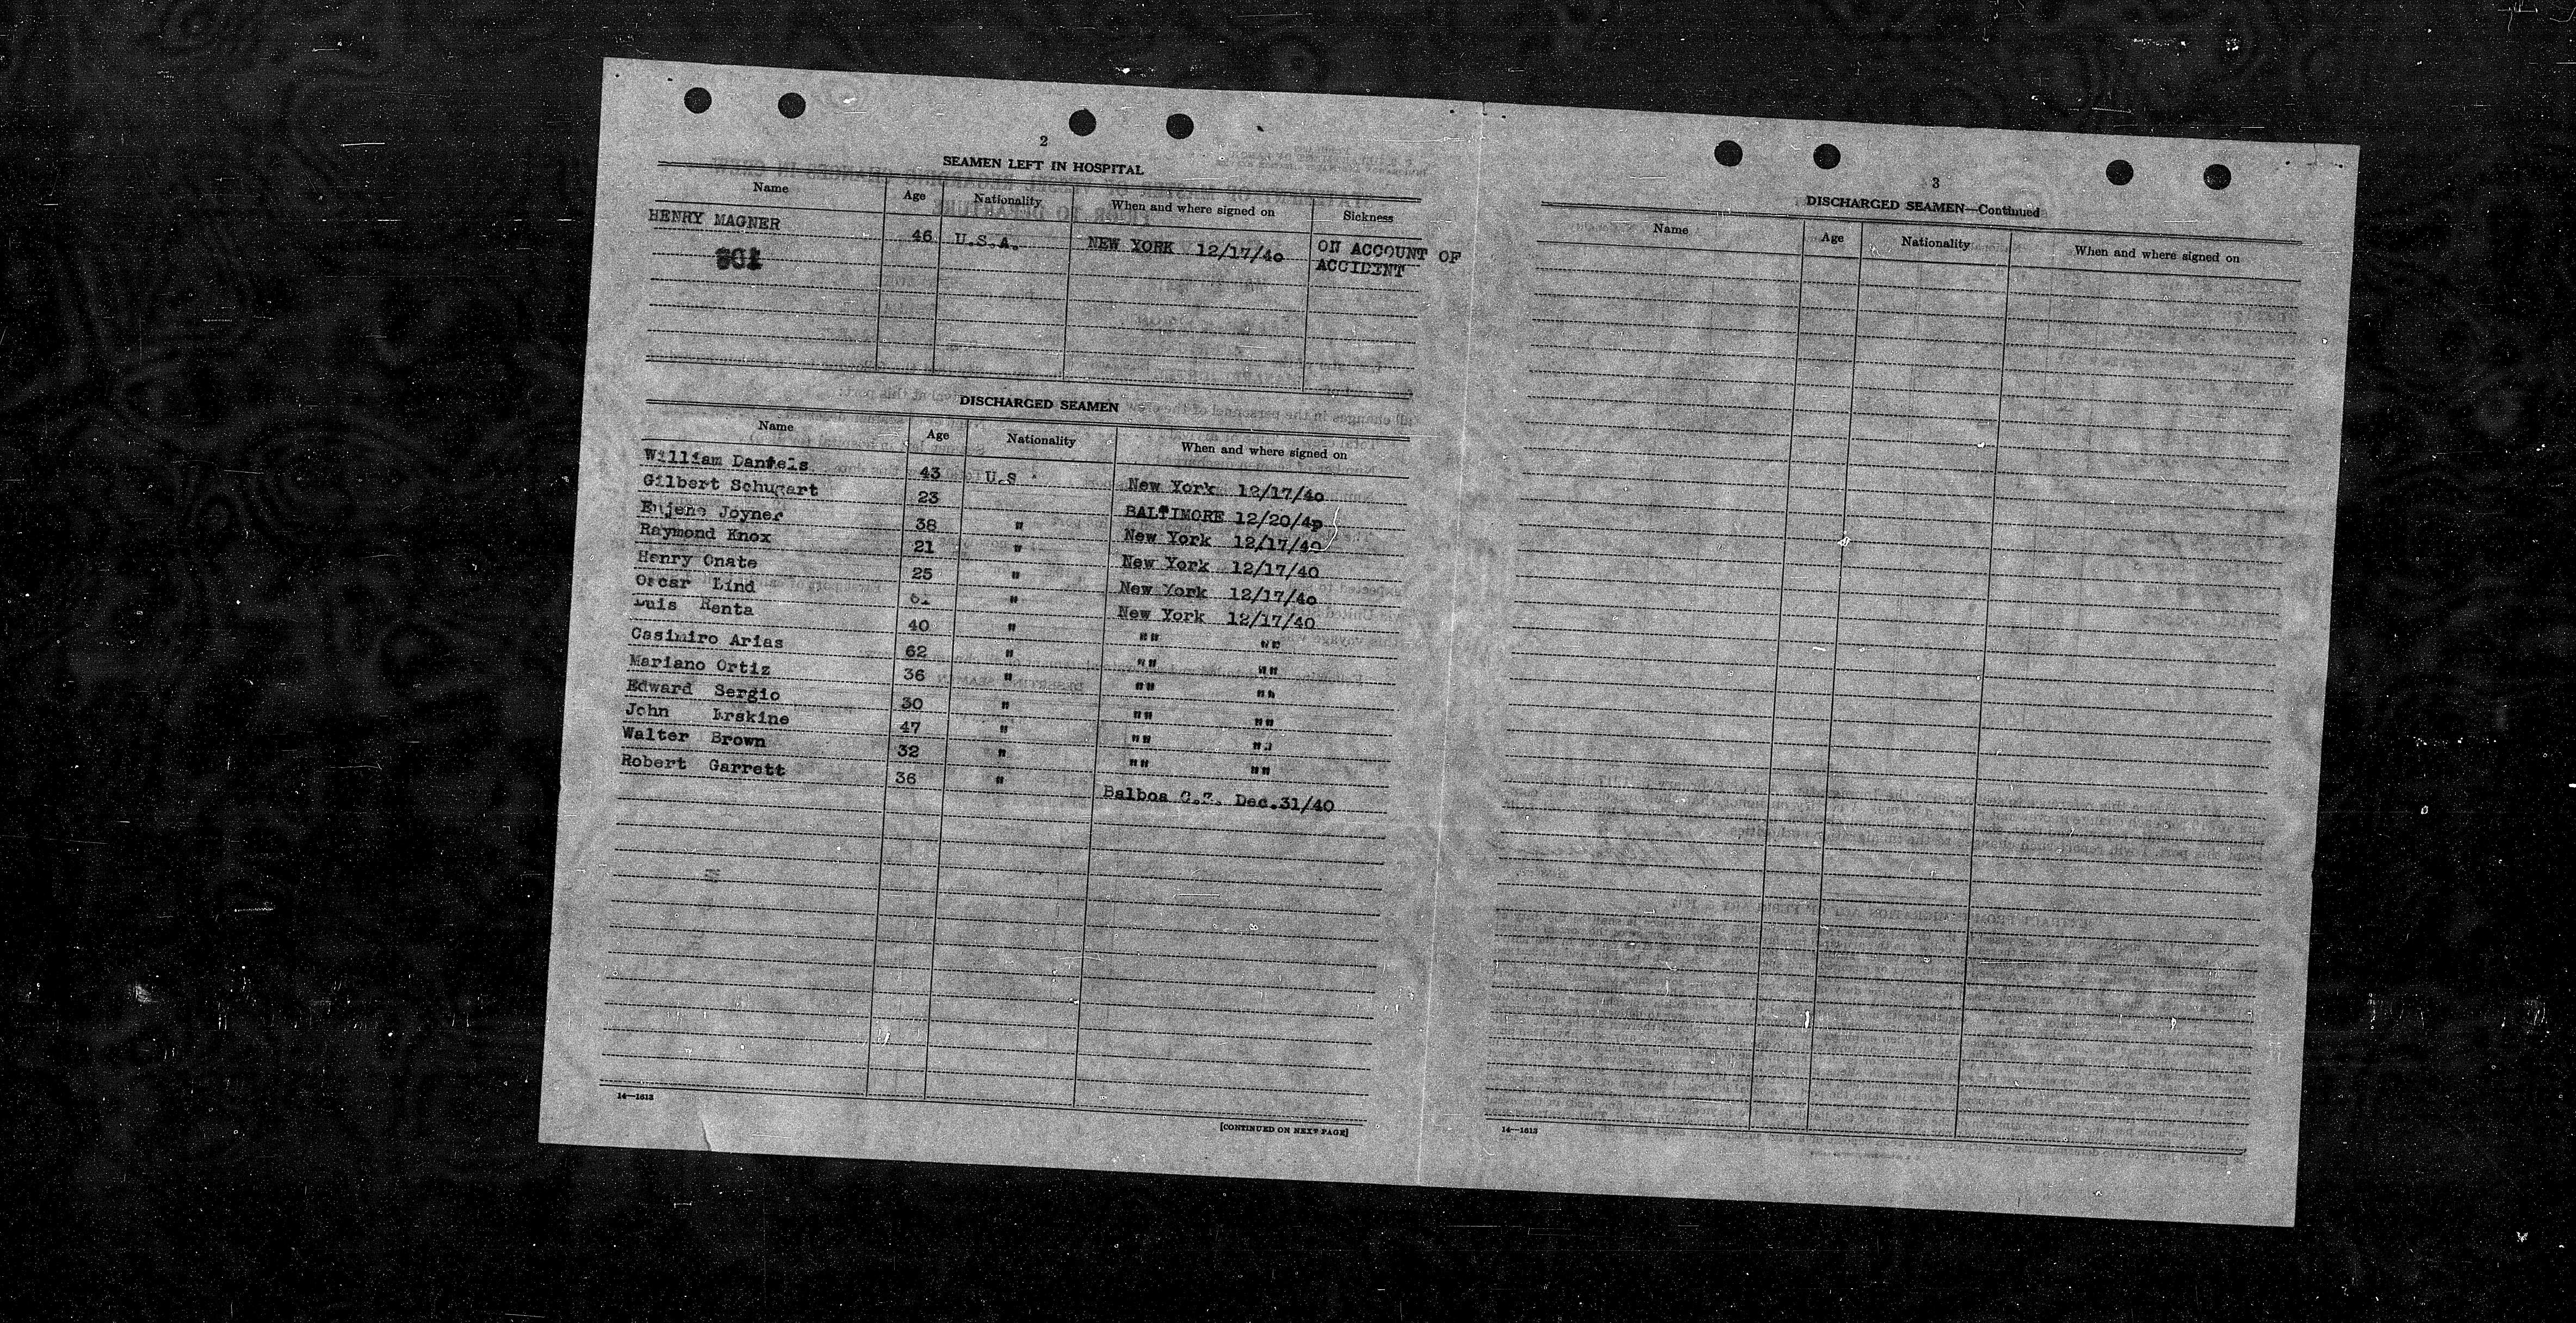 2
SEAMEN LEFT IN HOSPITAL
Name Age Nationality When and where signed on Sickness
HENRY MAGNER 46 U.S.A. NEW YORK 12/17/40 ON ACCOUNT OF
ACCIDENT
DISCHARGED SEAMEN
Name Age Nationality When and where signed on
William Daniels 43 U.S. New York 12/17/40
Gilbert Schugart 23 BALTIMORE 12/20/40
Eujene Joyner 38 " New York 12/17/40
Raymond Knox 21 " New York 12/17/40
Henry Onate 25 " New York 12/17/40
Oscar Lind 61 " New York 12/17/40
Luis Renta 40 " "" ""
Casimiro Arias 62 " "" ""
Mariano Ortiz 36 " "" ""
Edward Sergio 30 " "" ""
John Erskine 47 " "" ""
Walter Brown 32 " "" ""
Robert Garrett 36 " Balboa C.Z. Dec.31/40
14—1613
[CONTINUED ON NEXT PAGE]
3
DISCHARGED SEAMEN—Continued
Name Age Nationality When and where signed on
14—1613